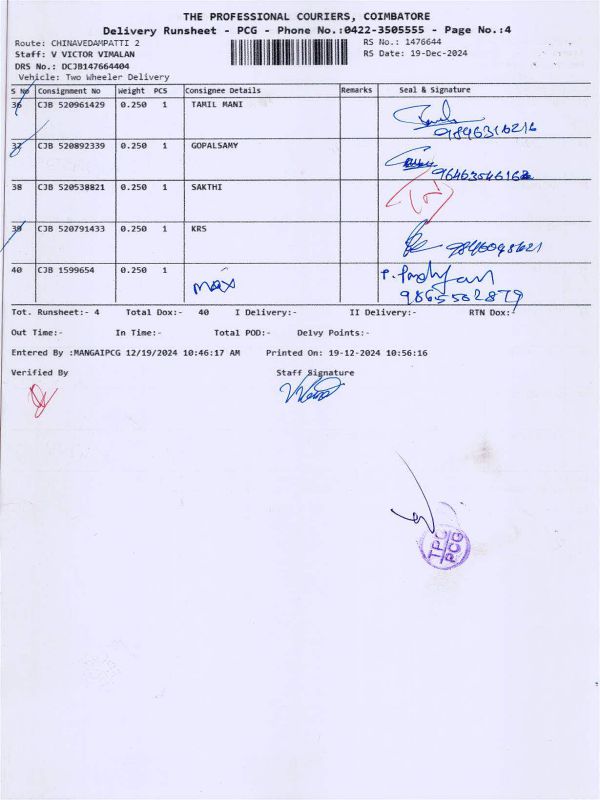 THE PROFESSIONAL COURIERS, COIMBATORE
Delivery Runsheet - PCG - Phone No.:0422-3505555 - Page No.:4
Route: CHINAVEDAMPATTI 2 RS No.: 1476644
Staff: V VICTOR VIMALAN RS Date: 19-Dec-2024
DRS No.: DCJB147664404
Vehicle: Two Wheeler Delivery
S No Consignment No Weight PCS Consignee Details Remarks Seal & Signature
36 CJB 520961429 0.250 1 TAMIL MANI
9846316216
37 CJB 520892339 0.250 1 GOPALSAMY
38 CJB 520538821 0.250 1 SAKTHI
39 CJB 520791433 0.250 1 KRS
40 CJB 1599654 0.250 1
max
9865562879
Tot. Runsheet:- 4 Total Dox:- 40 I Delivery:- II Delivery:- RTN Dox:-
Out Time:- In Time:- Total POD:- Delvy Points:-
Entered By :MANGAIPCG 12/19/2024 10:46:17 AM Printed On: 19-12-2024 10:56:16
Verified By Staff Signature
TPC
PCG